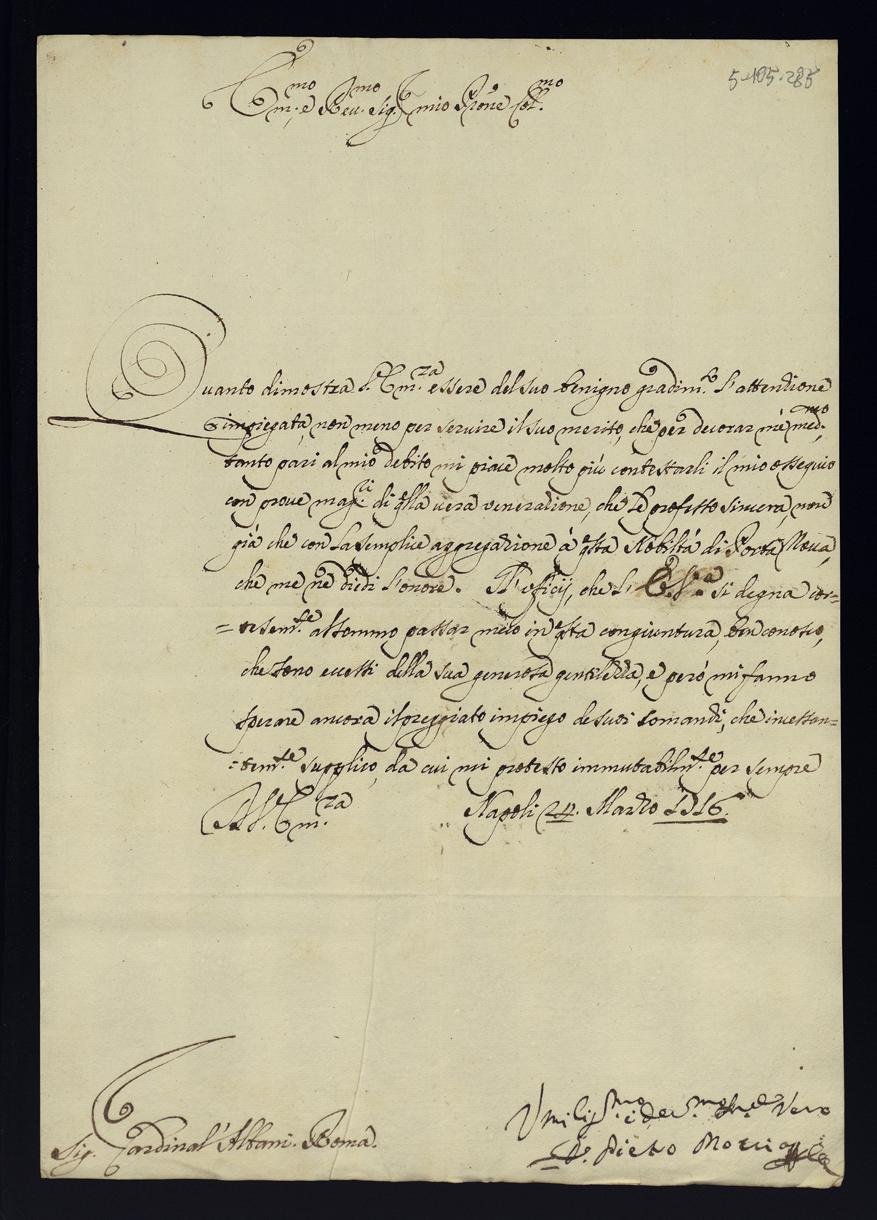 5-105-285
Em.mo e Reu.mo Sig.r mio P̃rone Col.mo
Quanto dimostra V. Em.za essere del suo benigno gradim.to l'attenzione
impiegata, non meno per seruire il suo merito, che per decorar me med.mo,
tanto pari al mio debito mi piace molto più contestarli il mio ossequio
con proue mag.ri di q̃lla uera uenerazione, che Le professo sincera, non
già che con la semplice aggregazione à q̃sta Nobiltà di Porta Noua,
che me ne diedi l'onore. Gl'officij, che l' E. V.a si degna cor-
=tesem.te al sommo passar meco in q̃sta congiuntura, ben conosco,
che sono eccessi della sua generosa gentilezza, e però mi fanno
sperare ancora il preggiato impiego de suoi comandi, che incessan=
=tem.te supplico, da cui mi protesto immutabilm.te per sempre
Di V. Em.za Napoli 24. Marzo 1716.
Sig. Cardinal' Albani. Roma.
Vmilis.mo e de.mo Vero
D. Pieto